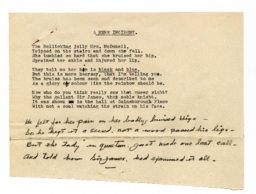 A NEWS INCIDENT.
The Rollicking Jolly Mrs. McDonall,
Tripped on the stairs and down she fell.
She tumbled so hard that she bruised her hip,
Sprained her ankle and injured her lip.
They tell me her hip is black and blue,
But this is mere hearsay, that I'm telling you.
The bruise has been seen and described to me
As a glory of colour like the rainbow should be.
Now who do you think really saw that queer sight?
Why the gallant Sir James, this noble knight.
It was shown on the hall at Gainsborough Place
With not a soul watching the strain on his face.
He felt for her pain on her lovely bruised hip -
So he kept it a secret, not a word passed his lips -
But the lady in question just made one phone call.
And Told how Sir James, had examined it all.